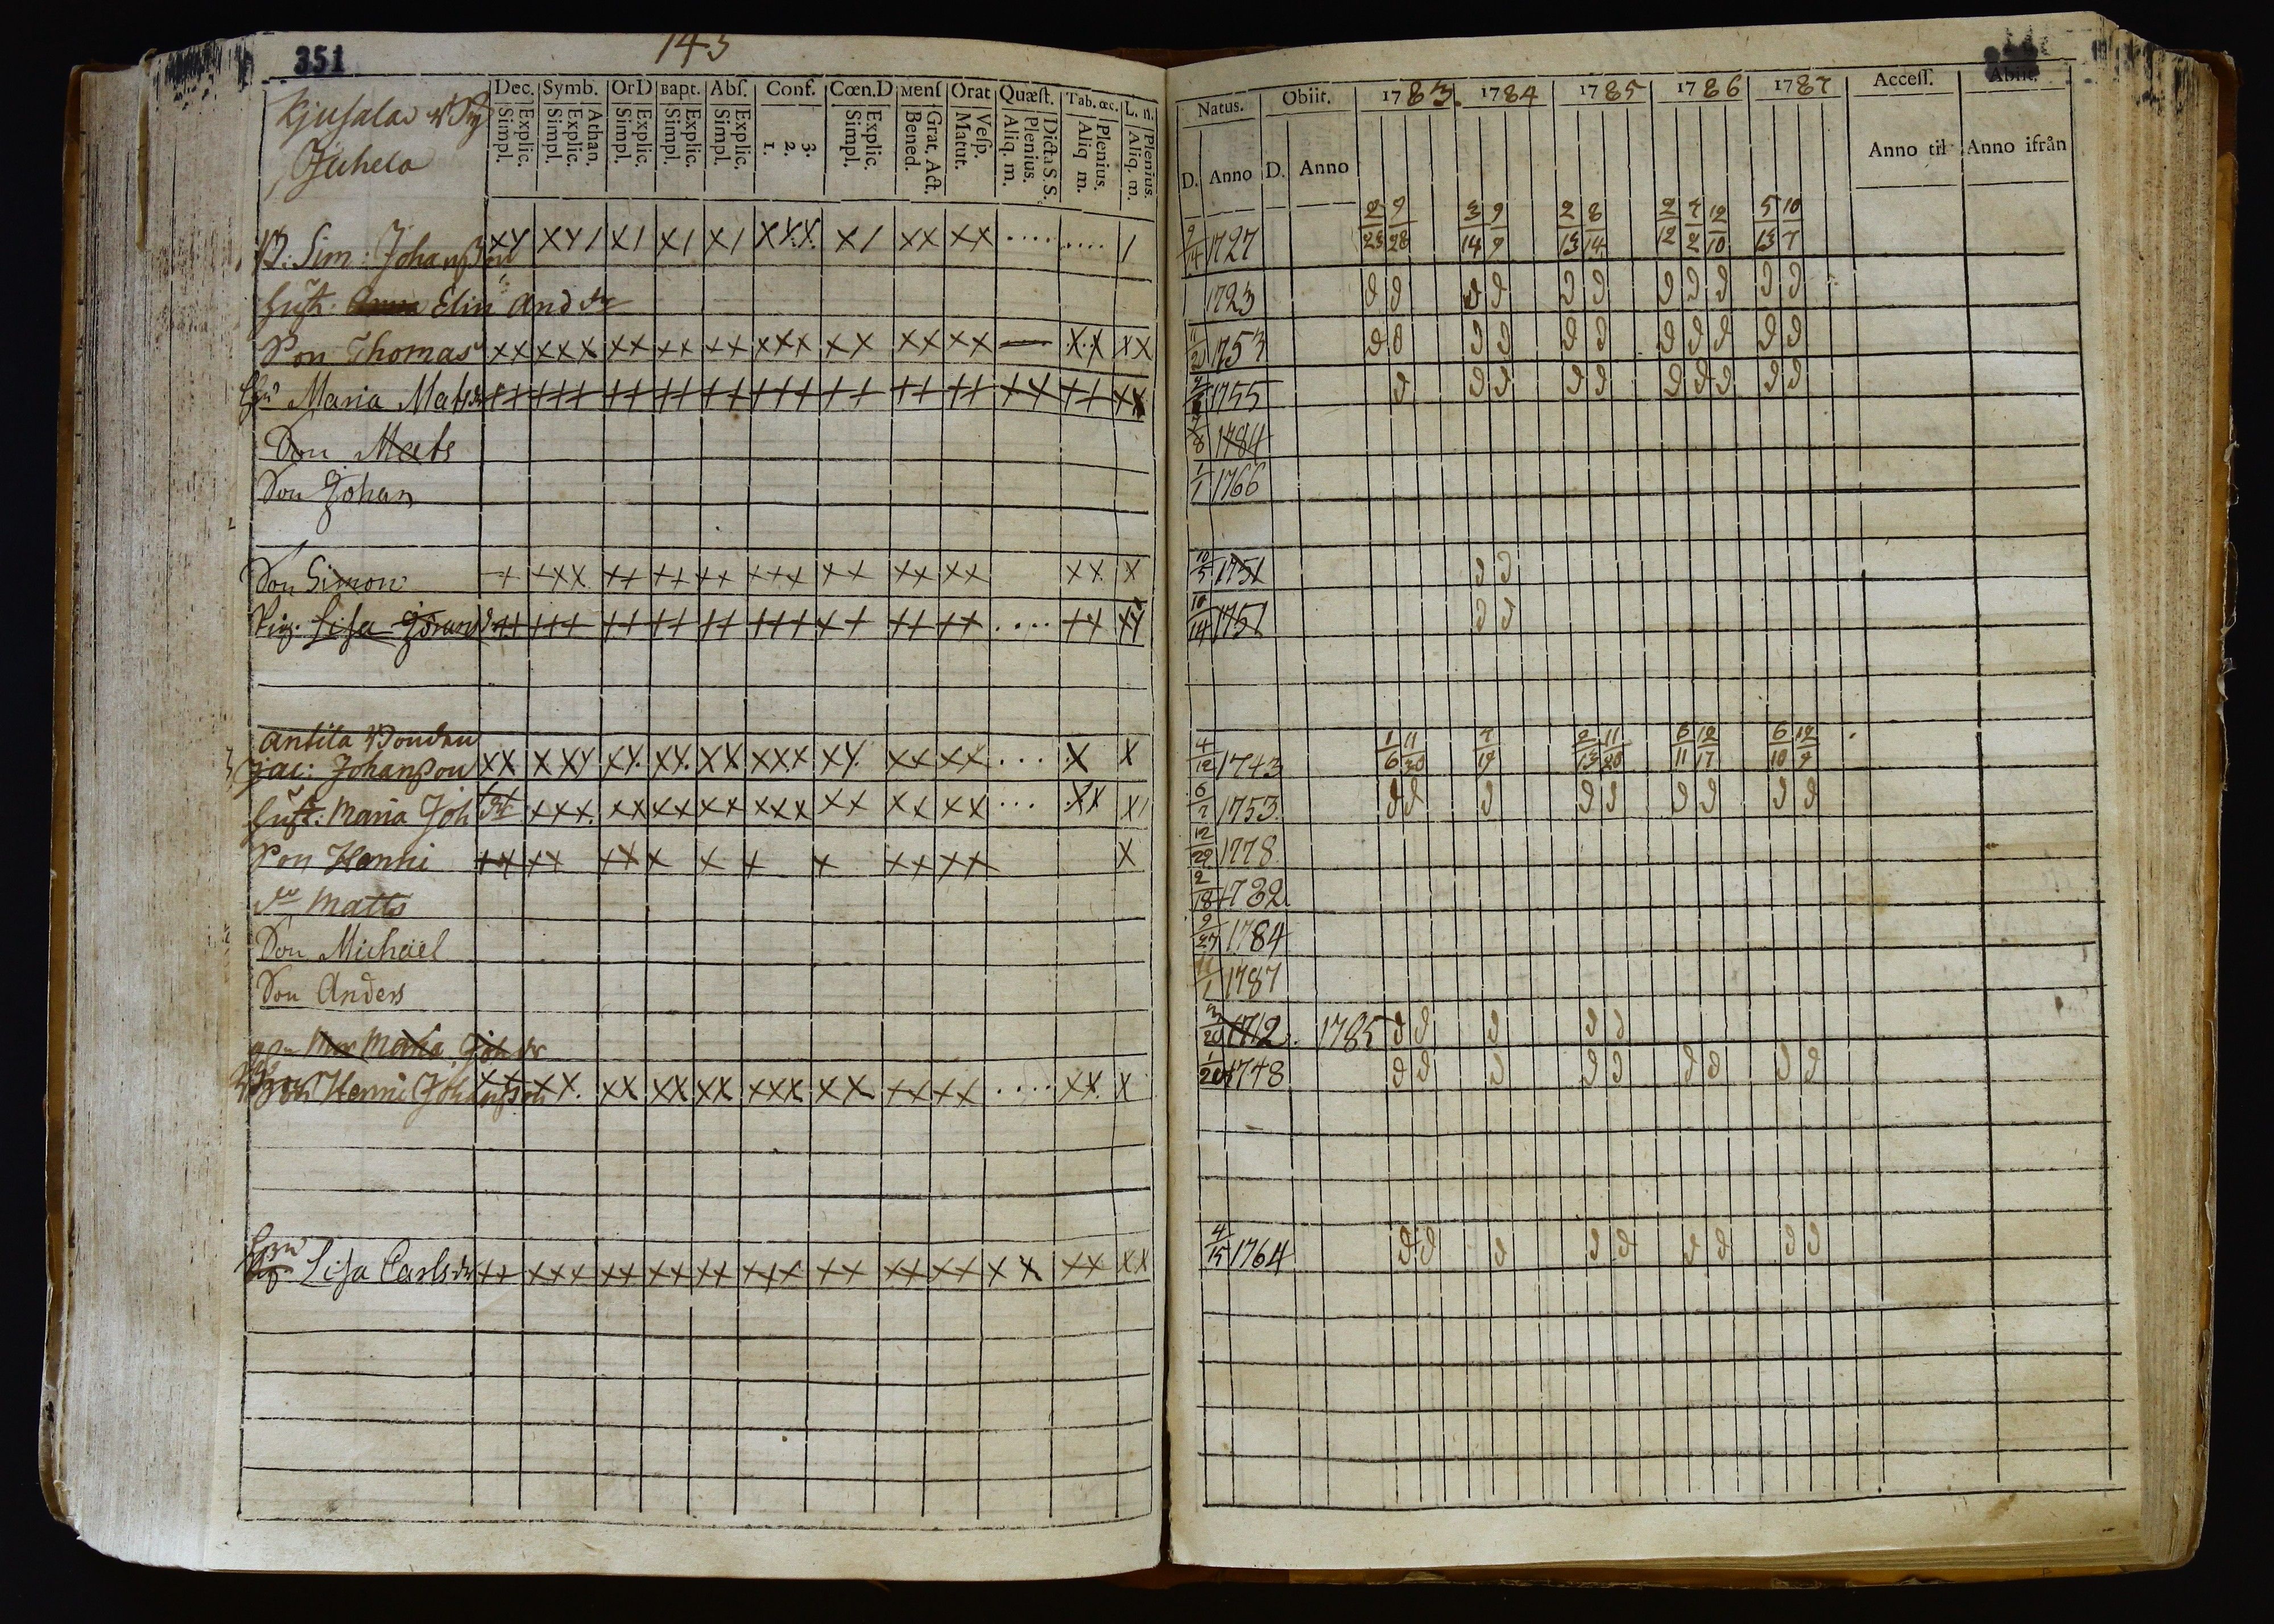 351
143
Dec. Symb. Or D Bapt. Abſ. Conf. Cœn.D Menſ Orat Quæſt. Tab. œc. L. n.
Explic. Simpl. Athan. Explic. Simpl. Explic. Simpl. Explic. Simpl. Explic. Simpl. 3. 2. 1. Explic. Simpl. Grat. Act. Bened. Veſp. Matut. Dicta S.S. Plenius. Aliq. m. Plenius. Aliq m. Plenius. Aliq. m.
Natus. Obiit. 1783. 1784 1785 1786 1787 Acceſſ. Abiit.
D. Anno D. Anno Anno til Anno ifrån
Kjusala By
Juhela
B. Sim: Johansson xx xx/ x/ x/ x/ xxx x/ xx xx .... .... / 9/14 1727 2/23 9/28 3/14 9/9 2/13 8/14 2/12 7/2 12/10 5/13 10/7
Hust: Elin And dr 1723
Son Thomas xx xxx xx xx xx xxx xx xx xx — xx xx 11/20 1753
Hu Maria Mats dr ++ +++ ++ ++ ++ +++ ++ ++ ++ ++ ++ xx 1755
Son Mats 1784
Son Johan 1/1 1766
Son Simon + +xx ++ ++ ++ +++ ++ xx xx xx x 10/5 1751
Pig. Lisa Görans dr ++ +++ ++ ++ ++ +++ ++ ++ ++ .... ++ 10/14 1751
Antila Bonden
Jac: Johansson xx xxx xx xx xx xxx xx xx xx ... x x 4/12 1743 1/6 11/30 2/13 11/20 6/11 12/17 6/10 12/9
Hust: Maria Joh dr xx xxx xx xx xx xxx xx xx xx ... xx x/ 6/7 1753
Son Henri ++ ++ ++ x x + + ++ ++ x 12/29 1778
dr Matts 2/18 1782
Son Michael 9/27 1784
Son Anders 11/1 1787
Mor Maria Joh dr 3/20 1712. 1785
Henri Johansson xx xx xx xx xx xxx xx ++ ++ .... xx x 1/20 1748
Lisa Carls dr ++ +++ ++ ++ ++ +++ ++ ++ ++ x x ++ xx 4/15 1764